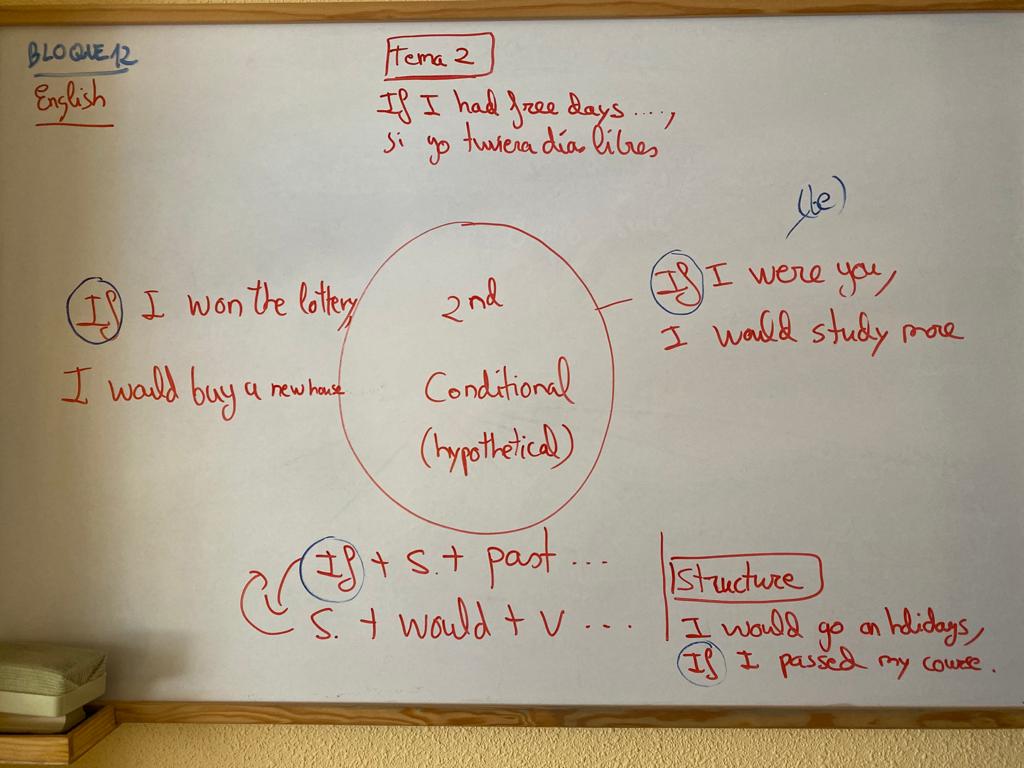 BLOQUE 12
English
Tema 2
If I had free days ....,
si yo tuviera día libres
(be)
If I won the lottery,
I would buy a new house
2nd
Conditional
(hypothetical)
If I were you,
I would study more
If + S. + past ...
S. + would + V ...
Structure
I would go on holidays,
If I passed my course.